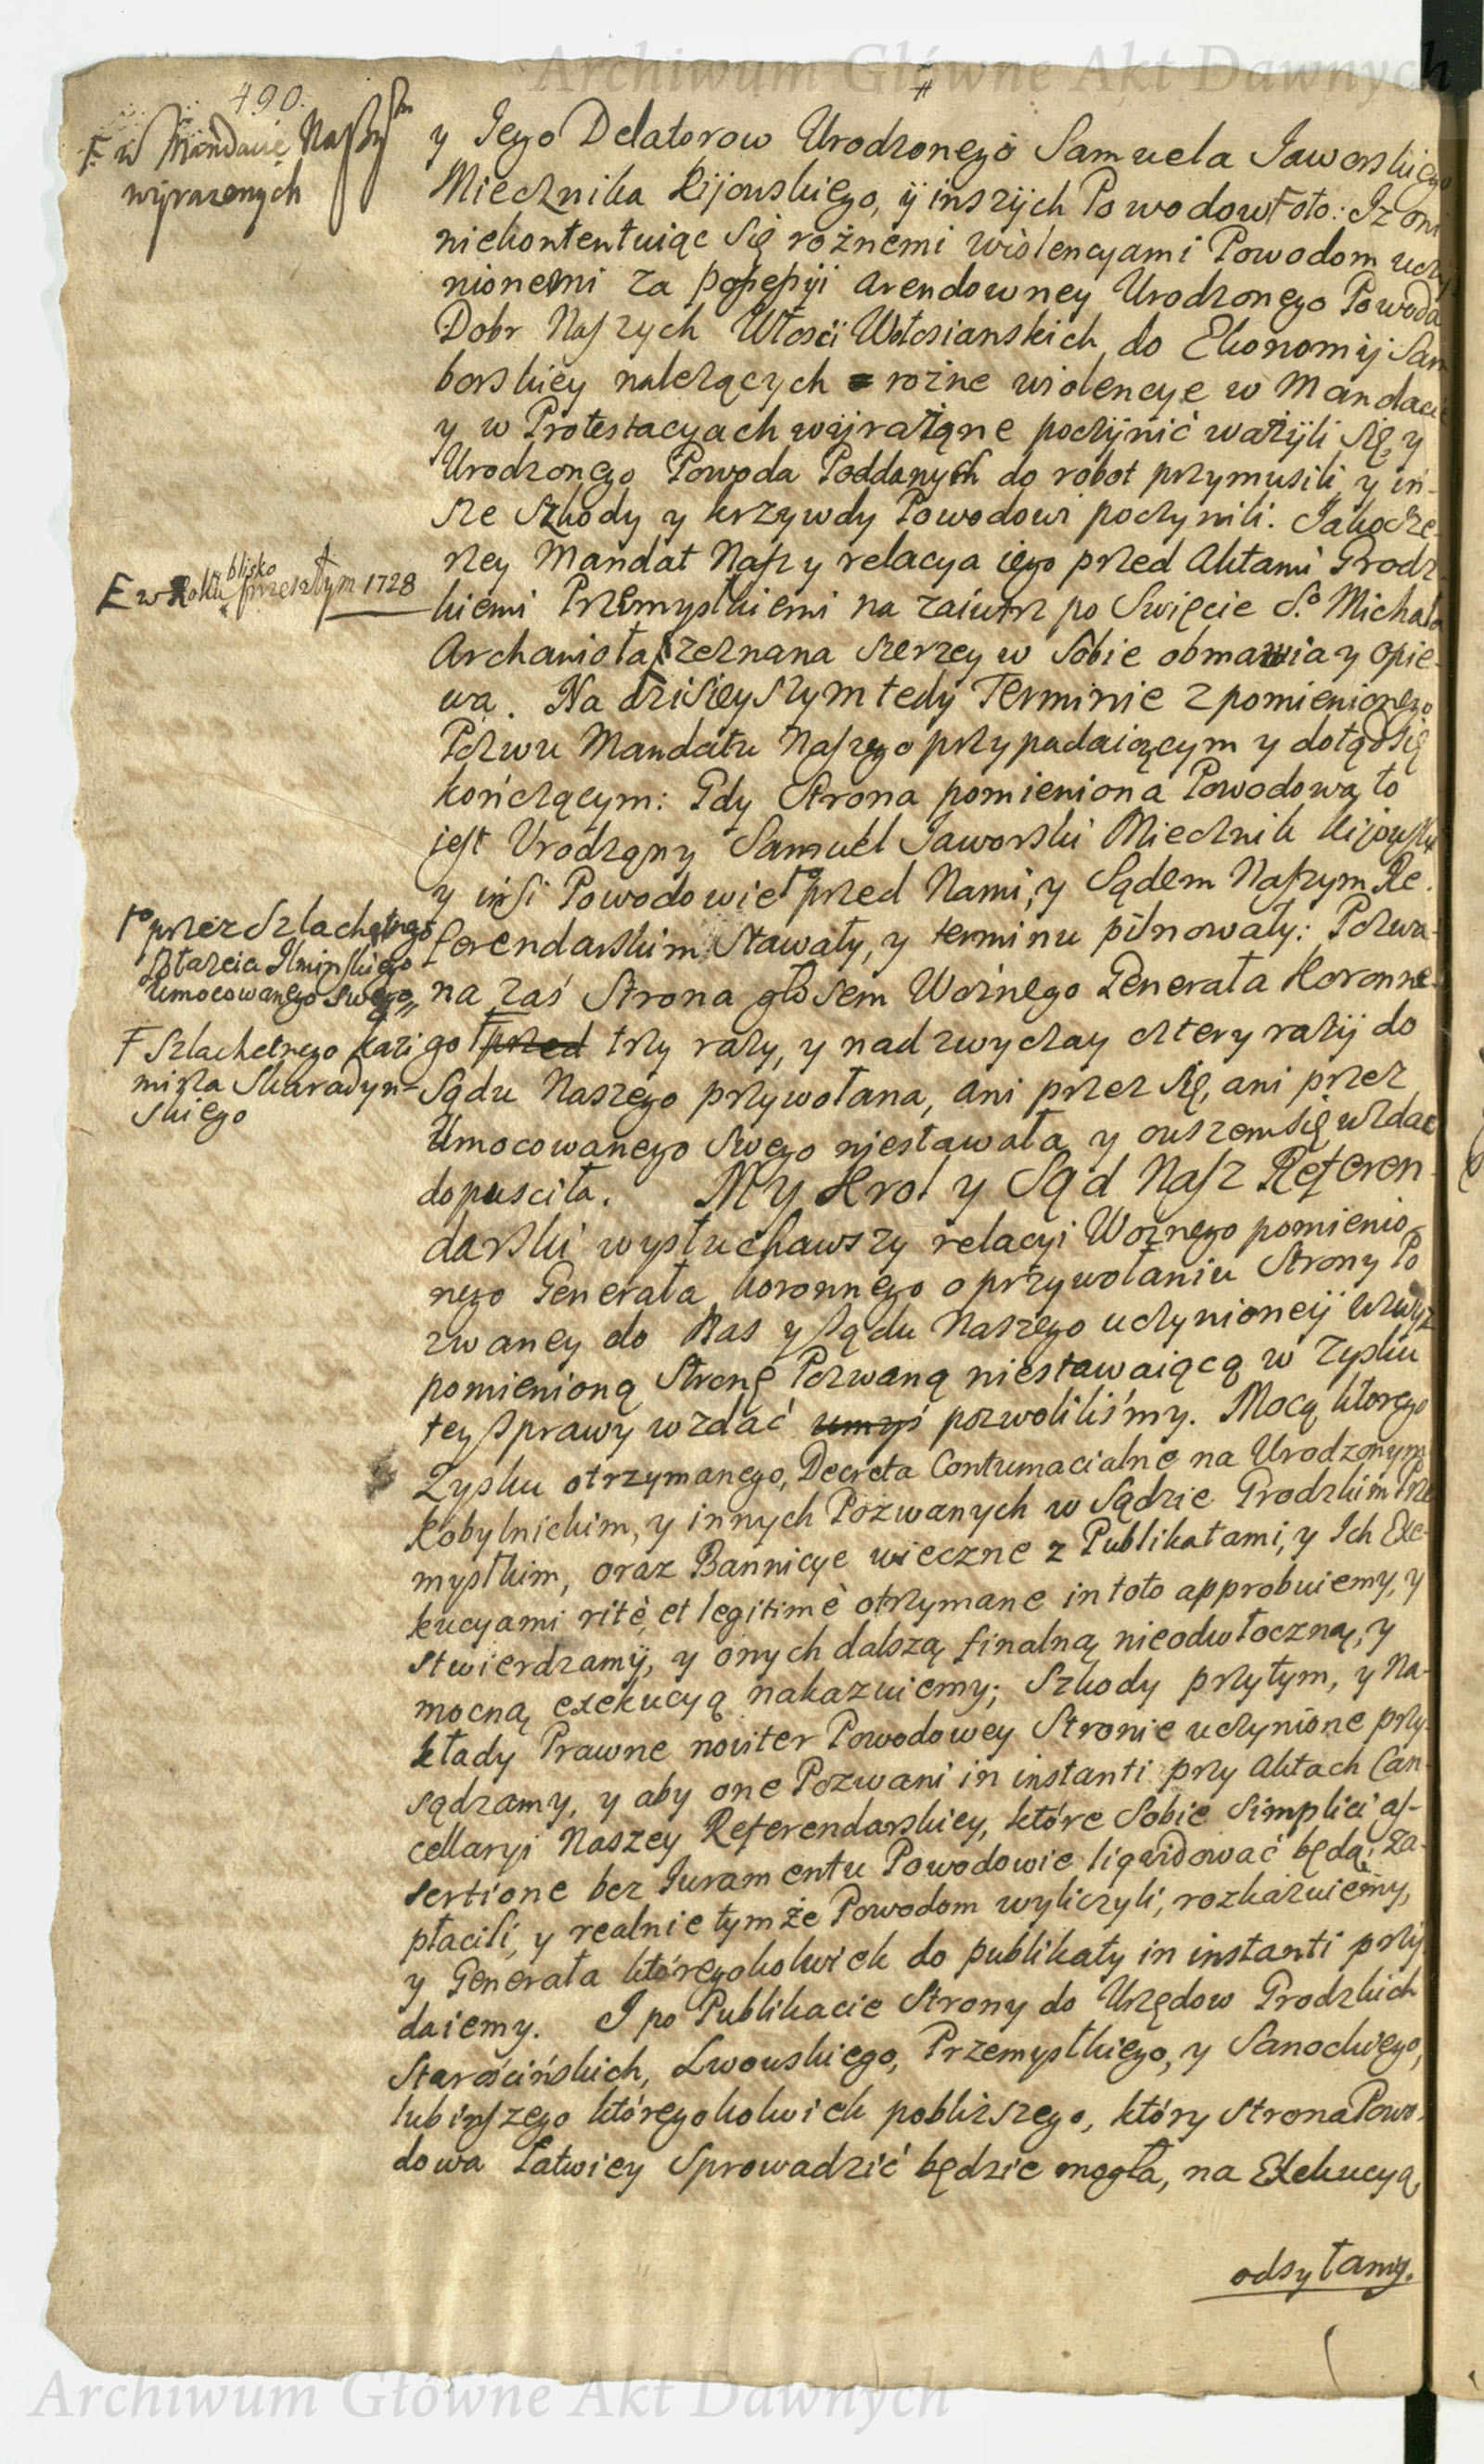 Archiwum Główne Akt Dawnych
490.
F w Mandacie Naszym
wyrazonych
y Jego Delatorow Urodzonego Samuela Jaworskiego
Miecznika Kijowskiego, ÿ inszÿch Powodow F oto: Iz oni
niekontentuiąc Się rożnemi wiolencyami Powodom uczy
nionemi za possessÿi Arendowney Urodzonego Powoda
Dobr Naszych Włosci Wołosianskich do Ekonomÿi Sam
borskiey nalezących rożne wiolencye w Mandacie
y w Protestacyach wÿrażąne poczÿnić ważÿli Się, y
Urodzonego Powoda Poddanych do robot przymusili, y in-
sze Szkody y krzywdy Powodowi poczynili. Jako sze-
rzey Mandat Nasz y relacya iego przed Aktami Grodz-
kiemi Przemyslkiemi na zaiutrz po Swięcie S.o Michała
E w Roku blisko przeszłym 1728
Archanioła E zeznana szerzey w Sobie obmawia y opie-
wa. Na dzisieyszym tedy Terminie z pomienionego
Pozwu Mandatu Naszego przypadaiącym y dotąd się
kończącym: Gdy Strona pomieniona Powodowa to
jest Urodzony Samuel Jaworski Miecznik Kijowski
y insi Powodowie przed Nami, y Sądem Naszym Re-
ferendarskim Stawały, y terminu pilnowały: Pozwa-
przez Szlachetnego
Umocowanego Swego
na zaś Strona głosem Woźnego Generała Koronne-
F Szlachetnego Kazi
mirza Skaradyn-
skiego
go F przed trzy razy, y nad zwyczay cztery razÿ do
Sądu Naszego przywołana, ani przez się, ani przez
Umocowanego Swego niestawała y owszem się wzdać
dopusciła. My Krol y Sąd Nasz Referen-
darski wysłuchawszy relacyi Woźnego pomienio-
nego Generała koronnego o przywołaniu Strony Po
zwaney do Nas y sądu Naszego uczynioneÿ wzwyz
pomienioną Stronę Pozwaną niestawaiącą w Zysku
tey sprawy wzdać pozwoliliśmy. Mocą ktorego
Zysku otrzymanego, Decreta Contumacialne na Urodzonym
Kobylnickim, y innych Pozwanych w Sądzie Grodzkim Prze
myslkim, oraz Bannicye wieczne z Publikatami, y Ich Exe-
kucyami ritè, et legitimè otrzymane in toto approbuiemy, y
stwierdzamÿ, y onych dalszą finalną nieodwłoczną, y
mocną exekucyą nakazuiemy; Szkody przytym, y Na-
kłady Prawne noviter Powodowey Stronie uczynione przy-
sądzamy, y aby one Pozwani in instanti przy Aktach Can-
cellaryi Naszey Referendarskiey, które Sobie Simplici as-
sertione bez Juramentu Powodowie liqvidować będą, za-
płacili, y realnie tymże Powodom wyliczyli, rozkazuiemy,
y Generała któregokolwiek do publikaty in instanti przÿ
daiemy. I po Publikacie Strony do Urzędow Grodzkich
Starościńskich, Lwowskiego, Przemyslkiego, y Sanockiego,
lub inszego któregokolwiek pobliższego, który strona Powo-
dowa łatwiey Sprowadzić będzie mogła, na Exekucyą
odsyłamy.
Archiwum Główne Akt Dawnych